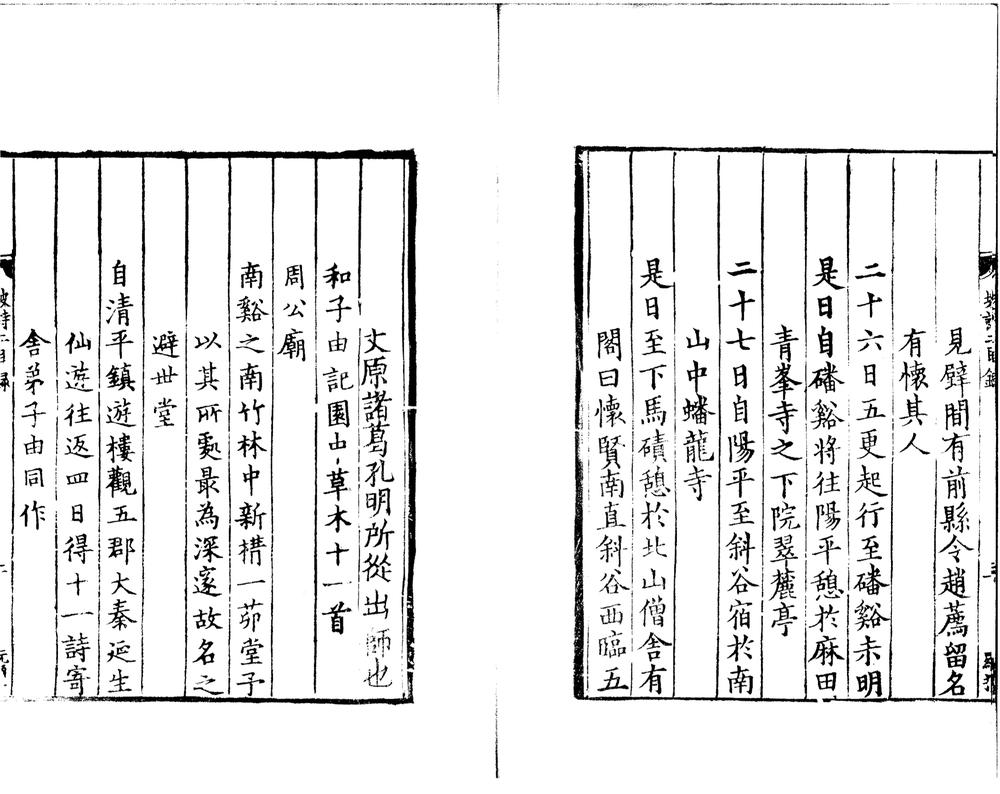 見壁間有前縣令趙薦留名
有懷其人
二十六日五更起行至磻谿未明
是日自磻谿將往陽平憩於麻田
青峯寺之下院翠麓亭
二十七日自陽平至斜谷宿於南
山中蟠龍寺
是日至下馬磧憩於北山僧舍有
閣曰懷賢南直斜谷西臨五
丈原諸葛孔明所從出師也
和子由記園中草木十一首
周公廟
南谿之南竹林中新構一茆堂予
以其所處最為深邃故名之
避世堂
自清平鎮遊樓觀五郡大秦延生
仙遊往返四日得十一詩寄
舍弟子由同作